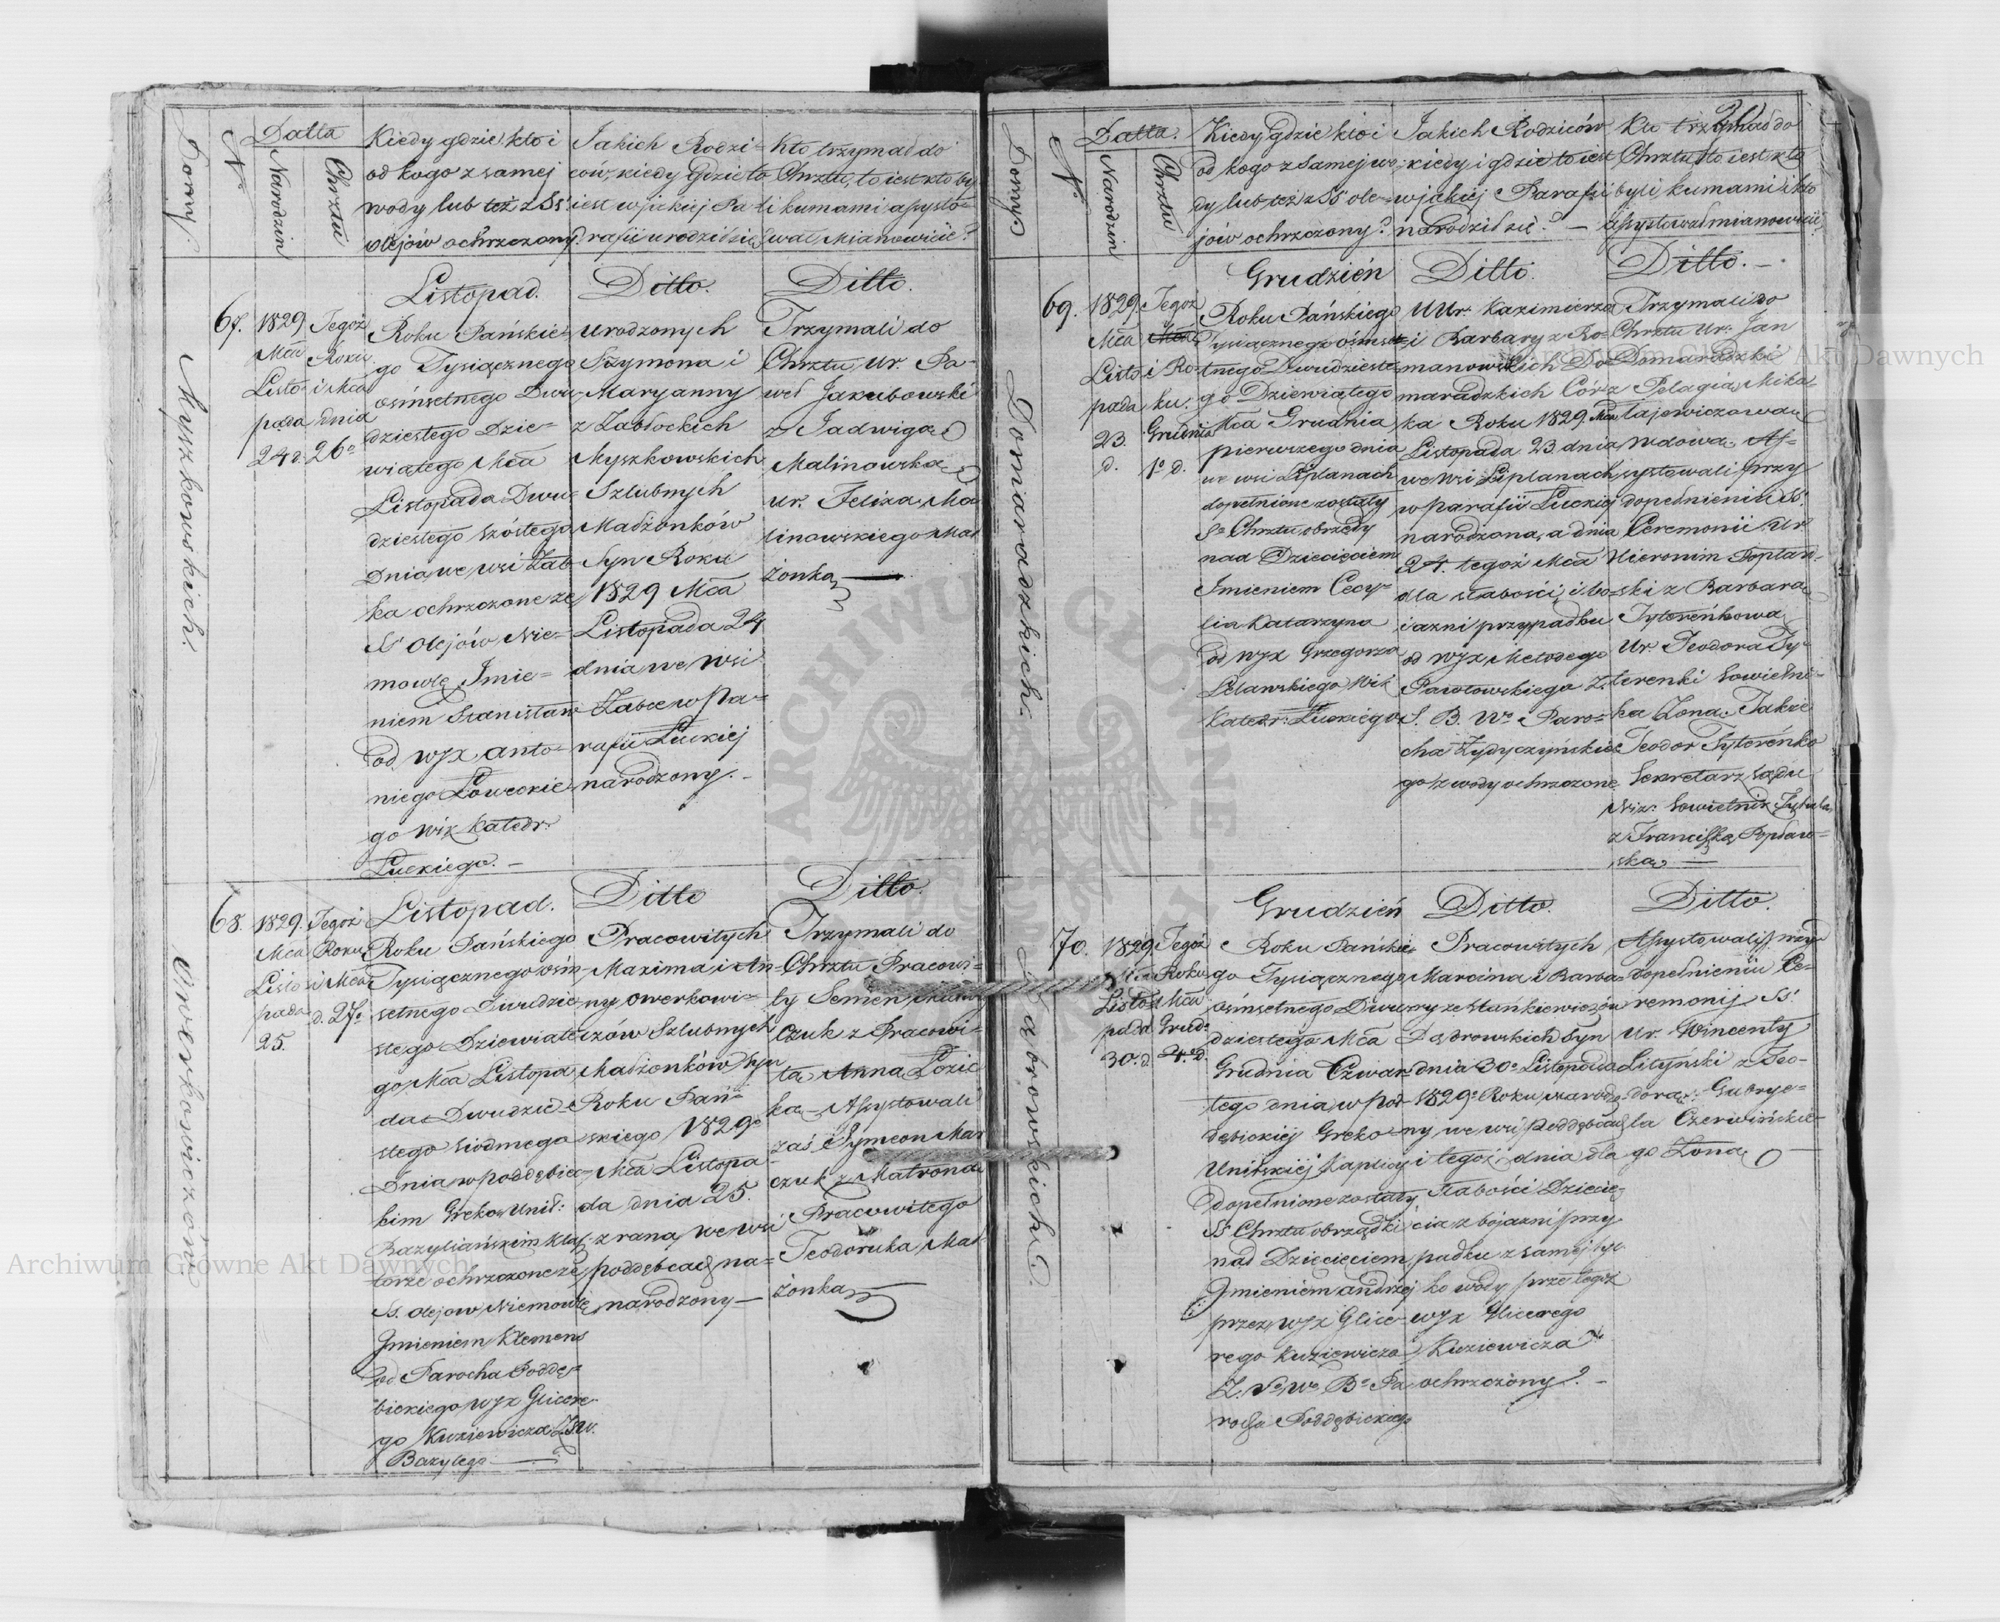 Domy.
N°
Datta
Narodzin
Chrztu
Kiedy gdzie kto i
od kogo z samej
wody lub też z SS
olejów ochrzczony?
Jakich Rodzi-
ców, kiedy Gdzie to
iest w jakiej Pa
rafii urodził się
Kto trzymał do
Chrztu, to iest kto by
li kumami a assysto-
wał Mianowicie?
Myszkowskich.
67.
1829
Mca
Listo-
pada
24 d.
Tegoż
Roku
i Mca
dnia
26°
Listopad.
Roku Pańskie-
go Tysiącznego
ośmsetnego Dwu-
dziestego Dzie-
wiątego Mca
Listopada Dwu-
dziestego szóstego
Dnia we wsi Zab-
ka ochrzczone ze
SS Olejów Nie-
mowlę Imie-
niem Stanisław
od WJX Anto-
niego
go Wik Katedr:
Łuckiego. -
Ditto.
Urodzonych
Szymona i
Maryanny
z Zabłockich
Myszkowskich
Szlubnych
Małżonków
Syn Roku
1829 Mca
Listopada 24
dnia we wsi
Zabce w Pa-
rafii Łuckiej
narodzony. -
Ditto.
Trzymali do
Chrztu Ur. Pa-
weł Jakubowski
z Jadwigą
Malinowską
ur. Felixa Ma
linowskiego Mał
żonką
Owerkowiczów
68.
1829.
Mca
Listo
pada
25.
Tegoż
Roku
i Mca
d. 27°
Listopad.
Roku Pańskiego
Tysiącznego ośm
setnego Dwudzie
stego Dziewiąte
go Mca Listopa
da Dwudzie-
stego siódmego
Dnia w poddębic-
kim Greko Unit:
Bazyliańskim Klasz
torze ochrzczone ze
SS. Olejow Niemowle
Imieniem Klemens
od Parocha Poddę-
bickiego WJX Glicere-
go Kuziewicza ZSW.
Bazylego
Ditto
Pracowitych
Maxima i An-
ny Owerkowi-
czów Szlubnych
Małżonków Syn
Roku Pań-
skiego 1829°
Mca Listopa
da dnia 25.
z rana, we wsi
poddębcach na-
narodzony —
Ditto.
Trzymali do
Chrztu Pracowi-
ty Semen
czuk z Pracowi-
tą Anną Łozic
ką - Assystowali
zaś Symeon Mar
czuk z Matroną
Pracowitego
Teodoruka Mał
żonką
Domy
N°
Datta.
Narodzin
Chrztu
Kiedy gdzie kto i
od kogo z samej wo-
dy lub też z SS ole-
jów ochrzczony?
Jakich Rodziców
kiedy i gdzie to iest
w jakiej Parafii
narodził się? —
Kto trzymał do
Chrztu, to iest kto
byli kumami i kto
assystował mianowicie?
Domaradzkich.
69.
1829.
Mca
Listo
pada
23.
d.
Tegoż
i Ro-
ku.
Grudnia
1° d.
Grudzień
Roku Pańskiego
Tysiącznego ośmse-
tnego Dwudzieste-
go Dziewiątego
Mca Grudnia
pierwszego dnia
we wsi Liplanach
dopełnione zostały
Se Chrztu obrzędy
nad Dziecięciem
Imieniem Cecy-
lia Katarzyna
od WJX Grzegorza
Lelawskiego Wik
Katedr: Łuckiego
Ditto.
UUr. Kazimierza
i Barbary z Ro-
manowskich Do-
maradzkich Cór
ka Roku 1829 Mca
Listopada 23. dnia
we wsi Liplanach
w parafii Łuckiej
narodzona, a dnia
24. tegoż Mca
dla słabości i bo-
iazni przypadku
od WJX Metodego
Pawłowskiego Z.
S. B. W° Paro-
cha Żydyczyńskie
go z wody ochrzczone
Ditto. —
Trzymali do
Chrztu Ur: Jan
Domaradzki
z Pelagią Mika
łajewiczową
wdową As-
systowali przy
dopełnieniu SS.
Ceremonii Ur
Hieronim Popław-
ski z Barbarą
Tyterenkową
Ur Teodora Ty-
terenki Sowietni-
ka Żoną. Także
Teodor Tyterenko
Sekretarz sądu
Niz: Sowietnik
z Franciszką Popław-
ską —
Dąbrowskich.
70.
1829.
Listo
pada
30. d.
Tegoż
Roku
Mca
Grud:
4. d.
Grudzień
Roku Pańskie-
go Tysiącznego
ośmsetnego Dwu-
dziestego Mca
Grudnia Czwar-
tego dnia w Pod-
dębickiej Greko-
Unitskiej Kaplicy
dopełnione zostały
SS Chrztu obrządki
nad Dziecięciem
Imieniem Andrzej
przez WJX Glice-
rego Kuziewicza
Z. S° W° B° Pa
rocha Poddębickiego
Ditto.
Pracowitych
Marcina i Barba
ry ze Stankiewiczów
Dąbrowskich Syn
dnia 30° Listopada
1829° Roku narodzo
ny we wsi Poddębcach
i tegoż dnia dla
słabości Dziecię-
cia z bojazni przy
padku z samej tyl
ko wody przez tegoż
WJX Glicerego
Kuziewicza
ochrzczony. -
Ditto.
Assystowali przy
dopełnieniu Ce-
remonij SS.
Ur. Wincenty
Lityński z Teo-
dorą Gabrye-
la Czerwińskie-
go Żoną